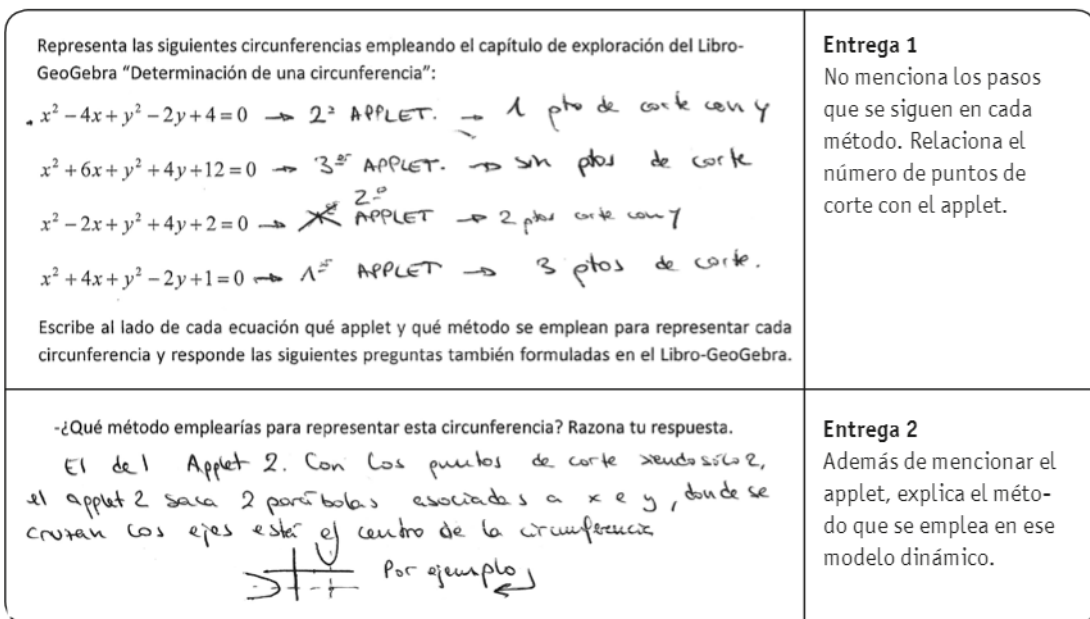 Representa las siguientes circunferencias empleando el capítulo de exploración del Libro-
GeoGebra "Determinación de una circunferencia":
x² − 4x + y² − 2y + 4 = 0 → 2ª APPLET. → 1 pto de corte con y
x² + 6x + y² + 4y + 12 = 0 → 3er APPLET. → sin ptos de corte
x² − 2x + y² + 4y + 2 = 0 → 2º APPLET → 2 ptos corte con y
x² + 4x + y² − 2y + 1 = 0 → 1er APPLET → 3 ptos de corte.
Escribe al lado de cada ecuación qué applet y qué método se emplean para representar cada
circunferencia y responde las siguientes preguntas también formuladas en el Libro-GeoGebra.
Entrega 1
No menciona los pasos
que se siguen en cada
método. Relaciona el
número de puntos de
corte con el applet.
-¿Qué método emplearías para representar esta circunferencia? Razona tu respuesta.
El del Applet 2. Con los puntos de corte siendo sólo 2,
el applet 2 saca 2 parábolas asociadas a x e y, donde se
cruzan los ejes está el centro de la circunferencia
Por ejemplo
Entrega 2
Además de mencionar el
applet, explica el méto-
do que se emplea en ese
modelo dinámico.